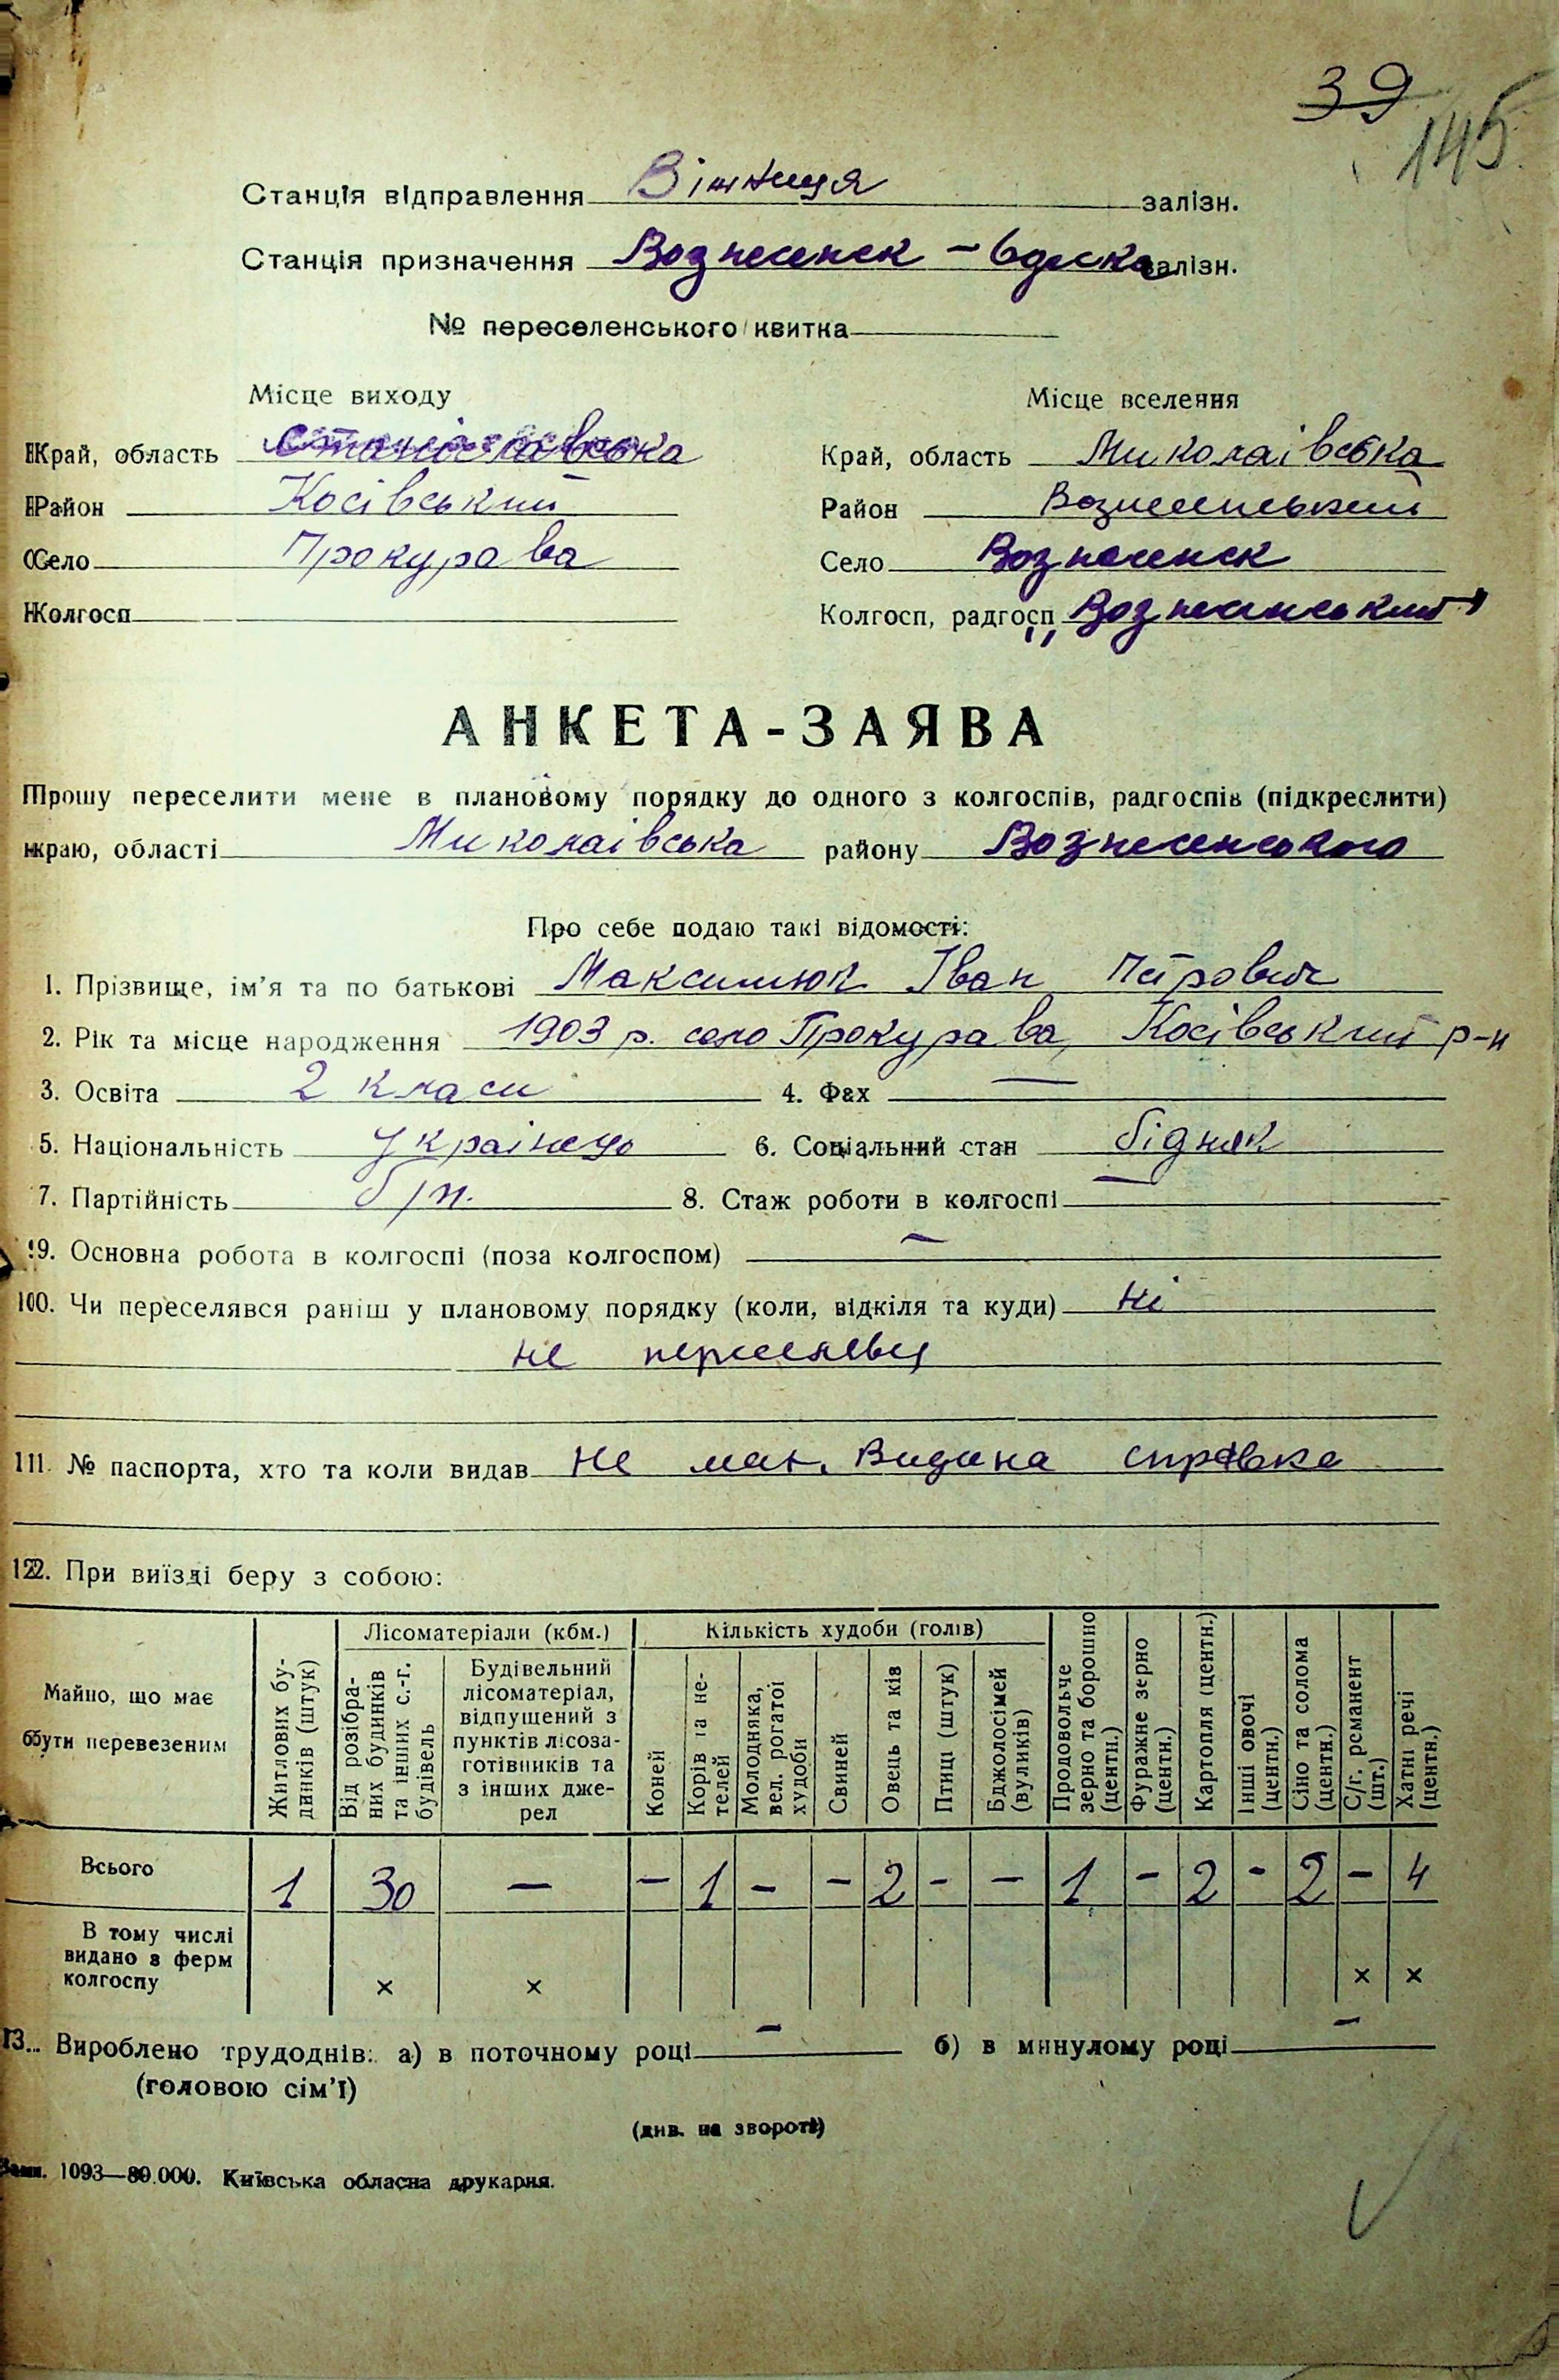 39
145
Станція відправлення Вінниця залізн.
Станція призначення Вознесенск – Одеська залізн.
№ переселенського квитка
Місце виходу
Край, область Станіславська
Район Косівський
Село Прокурава
Колгосп
Місце вселення
Край, область Миколаівська
Район Вознесенський
Село Вознесенск
Колгосп, радгосп „Вознесенський"
АНКЕТА-ЗАЯВА
Прошу переселити мене в плановому порядку до одного з колгоспів, радгоспів (підкреслити)
краю, області Миколаівська району Вознесенського
Про себе подаю такі відомості:
1. Прізвище, ім'я та по батькові Максимюк Іван Петрович
2. Рік та місце народження 1903 р. село Прокурава, Косівський р-н
3. Освіта 2 класи 4. Фах —
5. Національність Українець 6. Соціальний стан бідняк
7. Партійність б/п. 8. Стаж роботи в колгоспі —
9. Основна робота в колгоспі (поза колгоспом) —
10. Чи переселявся раніш у плановому порядку (коли, відкіля та куди) Ні
не переселявся
11. № паспорта, хто та коли видав Не має. Видана справка
12. При виїзді беру з собою:
Майно, що має бути перевезеним
Житлових будинків (штук)
Лісоматеріали (кбм.)
Від розібраних будинків та інших с.-г. будівель
Будівельний лісоматеріал, відпущений з пунктів лісозаготівників та з інших джерел
Кількість худоби (голів)
Коней
Корів та нетелей
Молодняка, вел. рогатої худоби
Свиней
Овець та ків
Птиці (штук)
Бджолосімей (вуликів)
Продовольче зерно та борошно (центн.)
Фуражне зерно (центн.)
Картопля (центн.)
Інші овочі (центн.)
Сіно та солома (центн.)
С/г. реманент (шт.)
Хатні речі (центн.)
Всього 1 30 — — 1 — — 2 — — 1 — 2 - 2 — 4
В тому числі видано з ферм колгоспу × × × ×
13. Вироблено трудоднів: а) в поточному році — б) в минулому році —
(головою сім'ї)
(див. на звороті)
Зам. 1093—80.000. Київська обласна друкарня.